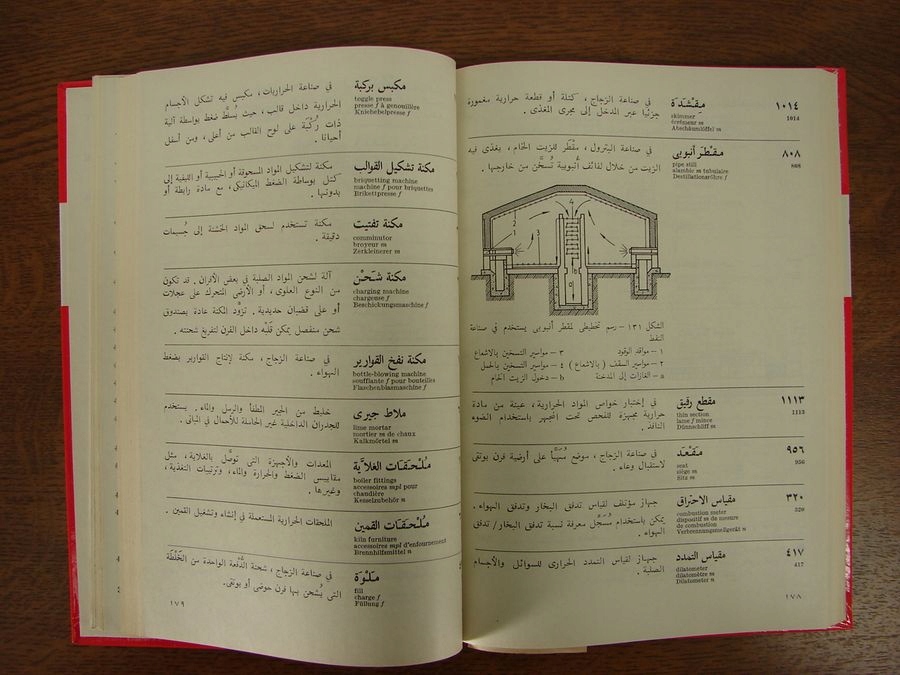 ١٠١٤
1014
مقشدة
skimmer
écrémeur m
Abschäumlöffel m
في صناعة الزجاج، كتلة أو قطعة حرارية مغمورة
جزئيا عبر المدخل إلى مجرى المغذى .
٨٠٨
808
مقطر أنبوبى
pipe still
alambic m tubulaire
Destillationsröhre f
في صناعة البترول، مقطر للزيت الخام، يغذى فيه
الزيت من خلال لفائف أنبوبية تُسخَّن من خارجها .
1
2
3
4
a
b
الشكل ١٣١ – رسم تخطيطى لمقطر أنبوبى يستخدم في صناعة
النفط
١ – مواقد الوقود
٣ – مواسير التسخين بالاشعاع
٢ – مواسير السقف ( بالاشعاع )
٤ – مواسير التسخين بالحمل
a – الغازات إلى المدخنة
b – دخول الزيت الخام
١١١٣
1113
مقطع رقيق
thin section
lame f mince
Dünnschliff m
في إختبار خواص المواد الحرارية، عينة من مادة
حرارية مجهزة للفحص تحت المجهر باستخدام الضوء
النافذ .
٩٥٦
956
مقعد
seat
siège m
Sitz m
في صناعة الزجاج، موضع مُهَيَّأ على أرضية فرن بوتقى
لاستقبال وعاء .
٣٢٠
320
مقياس الاحتراق
combustion meter
dispositif m de mesure
de combustion
Verbrennungsmeßgerät n
جهاز مؤتلف لقياس تدفق البخار وتدفق الهواء .
يمكن باستخدام مُسَجِّل معرفة نسبة تدفق البخار / تدفق
الهواء .
٤١٧
417
مقياس التمدد
dilatometer
dilatomètre m
Dilatometer n
جهاز لقياس التمدد الحرارى للسوائل والأجسام
الصلبة .
١٧٨
مكبس بركبة
toggle press
presse f à genouillère
Kniehebelpresse f
في صناعة الحراريات، مكبس فيه تشكل الأجسام
الحرارية داخل قالب، حيث يُسلَّط ضغط بواسطة آلية
ذات رُكْبَة على لوح القالب من أعلى، ومن أسفل
أحيانا .
مكنة تشكيل القوالب
briquetting machine
machine f pour briquettes
Brikettpresse f
مكنة لتشكيل المواد المسحوقة أو الحبيبية أو الليفية إلى
كتل بوساطة الضغط الميكانيكى، مع مادة رابطة أو
بدونها .
مكنة تفتيت
comminutor
broyeur m
Zerkleinerer m
مكنة تستخدم لسحق المواد الخشنة إلى جُسيمات
دقيقة .
مكنة شَحْن
charging machine
chargeuse f
Beschickungsmaschine f
آلة لشحن المواد الصلبة في بعض الأفران . قد تكون
من النوع العلوى، أو الأرضى المتحرك على عجلات
أو على قضبان حديدية . تزوَّد المكنة عادة بصندوق
شحن منفصل يمكن قَلْبه داخل الفرن لتفريغ شحنته .
مكنة نفخ القوارير
bottle-blowing machine
soufflante f pour bouteilles
Flaschenblasmaschine f
في صناعة الزجاج، مكنة لإنتاج القوارير بضغط
الهواء .
ملاط جيرى
lime mortar
mortier m de chaux
Kalkmörtel m
خليط من الجير المطفأ والرمل والماء . يستخدم
للجدران الداخلية غير الحاملة للأحمال في المبانى .
مُلحَقات الغلاَّية
boiler fittings
accessoires mpl pour
chaudière
Kesselzubehör n
المعدات والأجهزة التى توصَّل بالغلاية، مثل
مقاييس الضغط والحرارة والماء، وترتيبات التغذية،
وغيرها .
مُلحَقات القمين
kiln furniture
accessoires mpl d'enfournement
Brennhilfsmittel n
الملحقات الحرارية المستعملة في إنشاء وتشغيل القمين .
مَلْوَة
fill
charge f
Füllung f
في صناعة الزجاج، شحنة الدُّفعة الواحدة من الخَلْطَة
التى يُشحن بها فرن حوضى أو بوتقى .
١٧٩